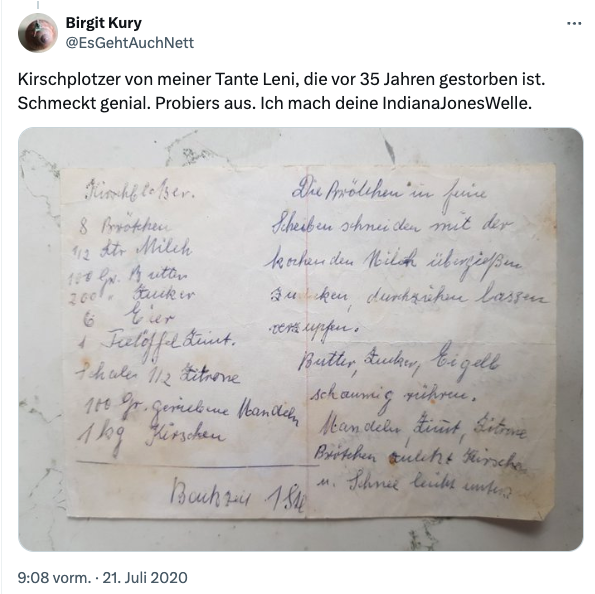 Birgit Kury
@EsGehtAuchNett
Kirschplotzer von meiner Tante Leni, die vor 35 Jahren gestorben ist.
Schmeckt genial. Probiers aus. Ich mach deine IndianaJonesWelle.
Kirschploßer.
8 Brötchen
1/2 Ltr Milch
100 Gr. Butter
200 " Zucker
6 Eier
1 Teelöffel Zimt.
Schale 1/2 Zitrone
100 Gr. geriebene Mandeln
1 kg Kirschen
Backzeit 1 Std
Die Brötchen in feine
Scheiben schneiden mit der
kochenden Milch übergießen
zudecken, durchziehen lassen
verzupfen.
Butter, Zucker, Eigelb
schaumig rühren.
Mandeln, Zimt, Zitrone
Brötchen zuletzt Kirschen
u. Schnee leicht
9:08 vorm. · 21. Juli 2020